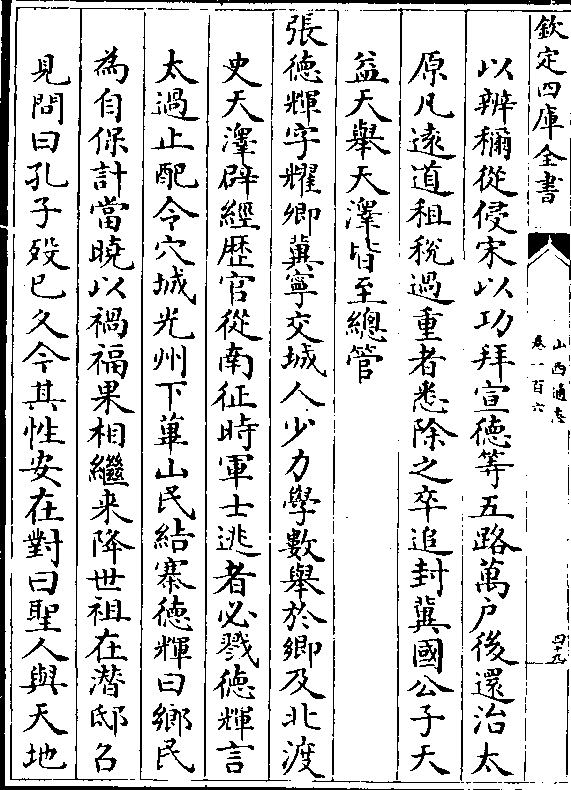 欽定四庫全書
山西通志
卷一百六
四十九
以辨稱從侵宋以功拜宣德等五路萬户後還治太
原凡逺道租稅過重者悉除之卒追封冀國公子天
益天舉天澤皆至總管
張德輝字耀卿冀寧交城人少力學數舉於鄉及北渡
史天澤辟經歴官從南征時軍士逃者必戮德輝言
太過止配令穴城光州下華山民結寨德輝曰鄉民
為自保計當曉以禍福果相繼来降世祖在潜邸召
見問曰孔子殁已久今其性安在對曰聖人與天地